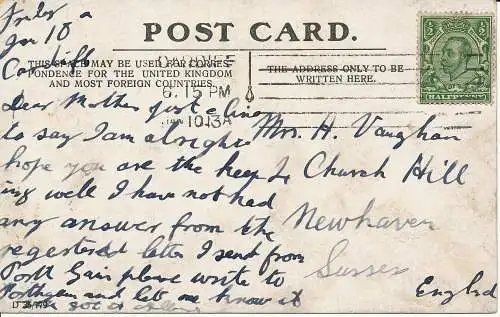 Friday
Jan 10
POST CARD.
THIS SPACE MAY BE USED FOR CORRES-
PONDENCE FOR THE UNITED KINGDOM
AND MOST FOREIGN COUNTRIES.
THE ADDRESS ONLY TO BE
WRITTEN HERE.
6.15 PM
JAN 10 13
HALFPENNY
Dear Mother just a line
to say I am alright
hope you are the keep
ing well I have not had
any answer from the
registered letter I sent from
Porth Gain please write to
Porthgain and let me know it
D 26779
Mrs. H. Vaughan
2 Church Hill
Newhaven
Sussex
Englnd